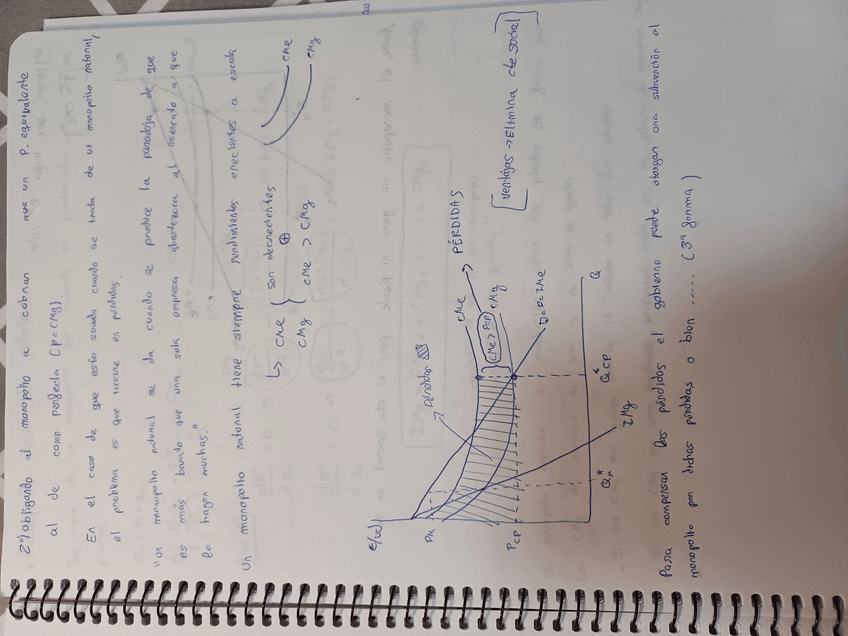 2º) Obligando al monopolio a cobrar un P. equivalente
al de como perfecta (P=CMg)
En el caso de que esto suceda cuando se trata de un monopolio natural,
el problema es que incurre en pérdidas.
"un monopolio natural se da cuando se produce la paradoja de que
es más barato que una sola empresa abastezca al mercado a que
lo hagan muchas."
Un monopolio natural tiene siempre rendimientos crecientes a escala
↳ CMe
CMg
son decrecientes
⊕
CMe > CMg
CMe
CMg
€/u
PM
PCP
Pérdidas
CMe
PÉRDIDAS
CMe > PCP
CMg
D=P=IMe
IMg
Q*M
Q*CP
Q
[ventajas → Elimina cte social]
Para compensar las pérdidas el gobierno puede otorgar una subvención al
monopolio por dichas pérdidas o bien ..... (3ª forma)